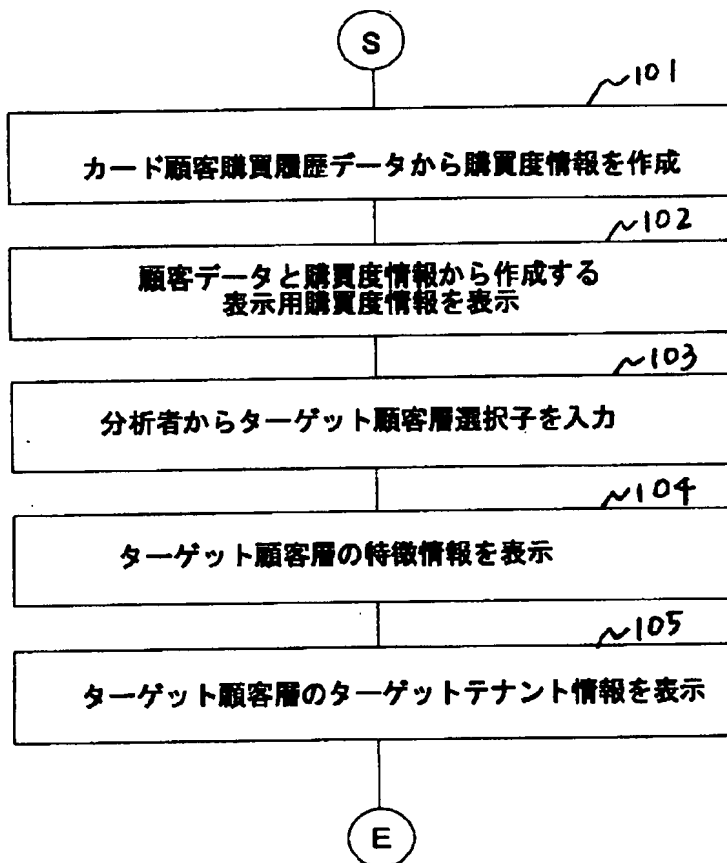 S
101
カード顧客購買履歴データから購買度情報を作成
102
顧客データと購買度情報から作成する
表示用購買度情報を表示
103
分析者からターゲット顧客層選択子を入力
104
ターゲット顧客層の特徴情報を表示
105
ターゲット顧客層のターゲットテナント情報を表示
E